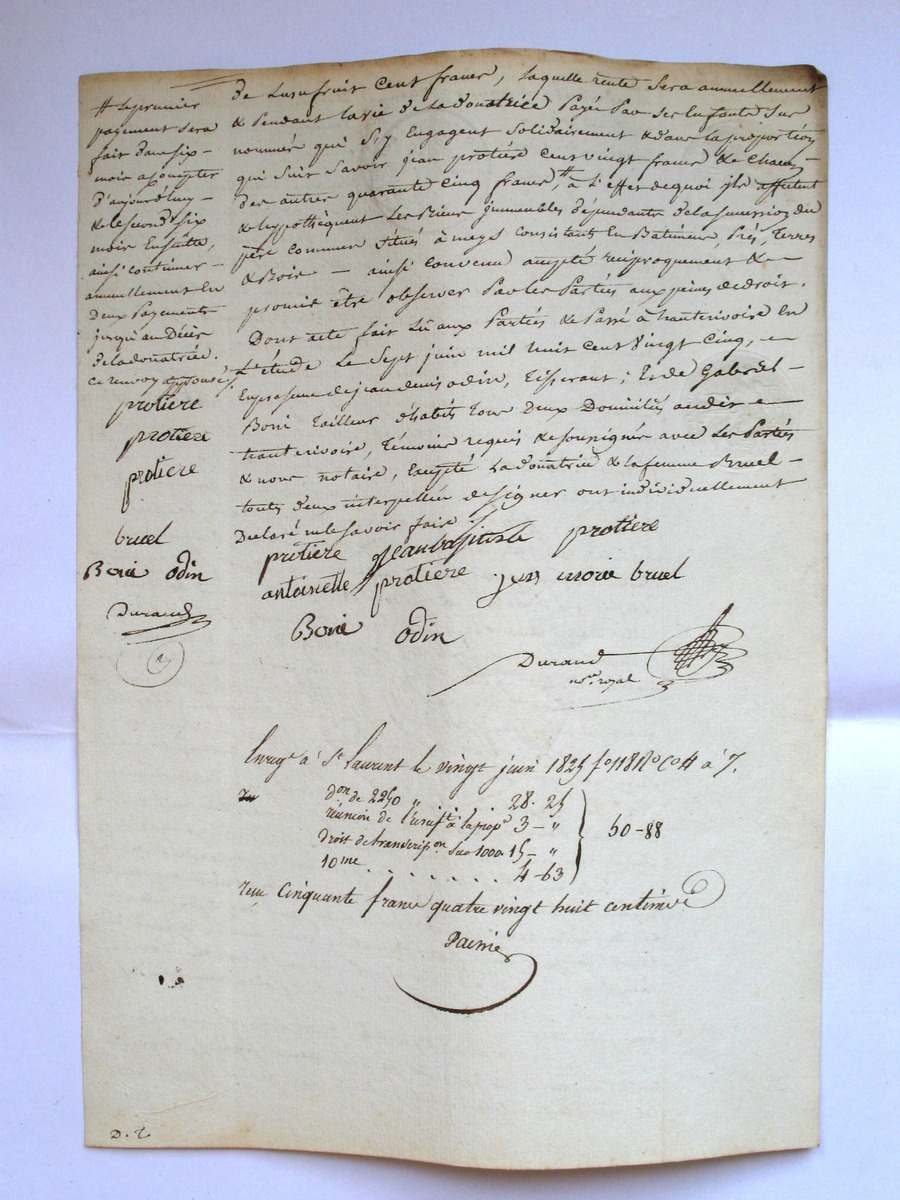 # Le premier
payement sera
fait dans six
mois a compter
d'aujourd'huy
& le second six
mois Ensuitte,
ainsi continuer
annuellement En
deux Payements
jusqu'au Décès
de la donatrice.
ce renvoy approuvé
protiere
protiere
protiere
bruel
Boni Odin
Durand
de Lusufruit Cent francs, laquelle rente Sera annuellement
& Pendant la vie de la donatrice Payée Par ses Enfants Sus
nommés qui S'y Engagent Solidairement & dans la proportion
qui Suit Savoir jean protière Cent vingt francs & Chacun
des autres quarante Cinq francs,# à L'effet de quoi jls affectent
& hypothèquent Les Biens jmmeubles dépendants de la succession du
père commun Situés à meys Consistant En Batiments, Prés, Terres
& Bois — ainsi convenu accepté reciproquement &
promis être observé Par les Parties aux peines de droit.
Dont acte fait Lû aux Parties & Passé à hauterivoire En
L'étude Le Sept juin mil huit Cent Vingt Cinq,
En presence de jean denis odin, Tisserant; & de Gabriel
Boni Tailleur d'habits Tous Deux Domiciliés audit
hauterivoire, Témoins requis & soussignés avec Les Parties
& nous notaire, Excepté La donatrice & la femme Bruel
toutes deux interpellées de signer ont individuellement
Déclaré ne le savoir faire.
protiere jeanbaptiste protiere
antoinette protiere jean marie bruel
Boni odin
Durand
nore royal
Enregt à St Laurent le vingt juin 1825 fo 118 Ro Co 4 à 7.
don de 2250 " . . . . 28. 25
réunion de l'usuft à la propé 3 — "
droit de transcripon sur 1000. 15 — "
10me . . . . . . . . 4-63
50-88
reçu Cinquante francs quatre vingt huit centimes
D. 2.